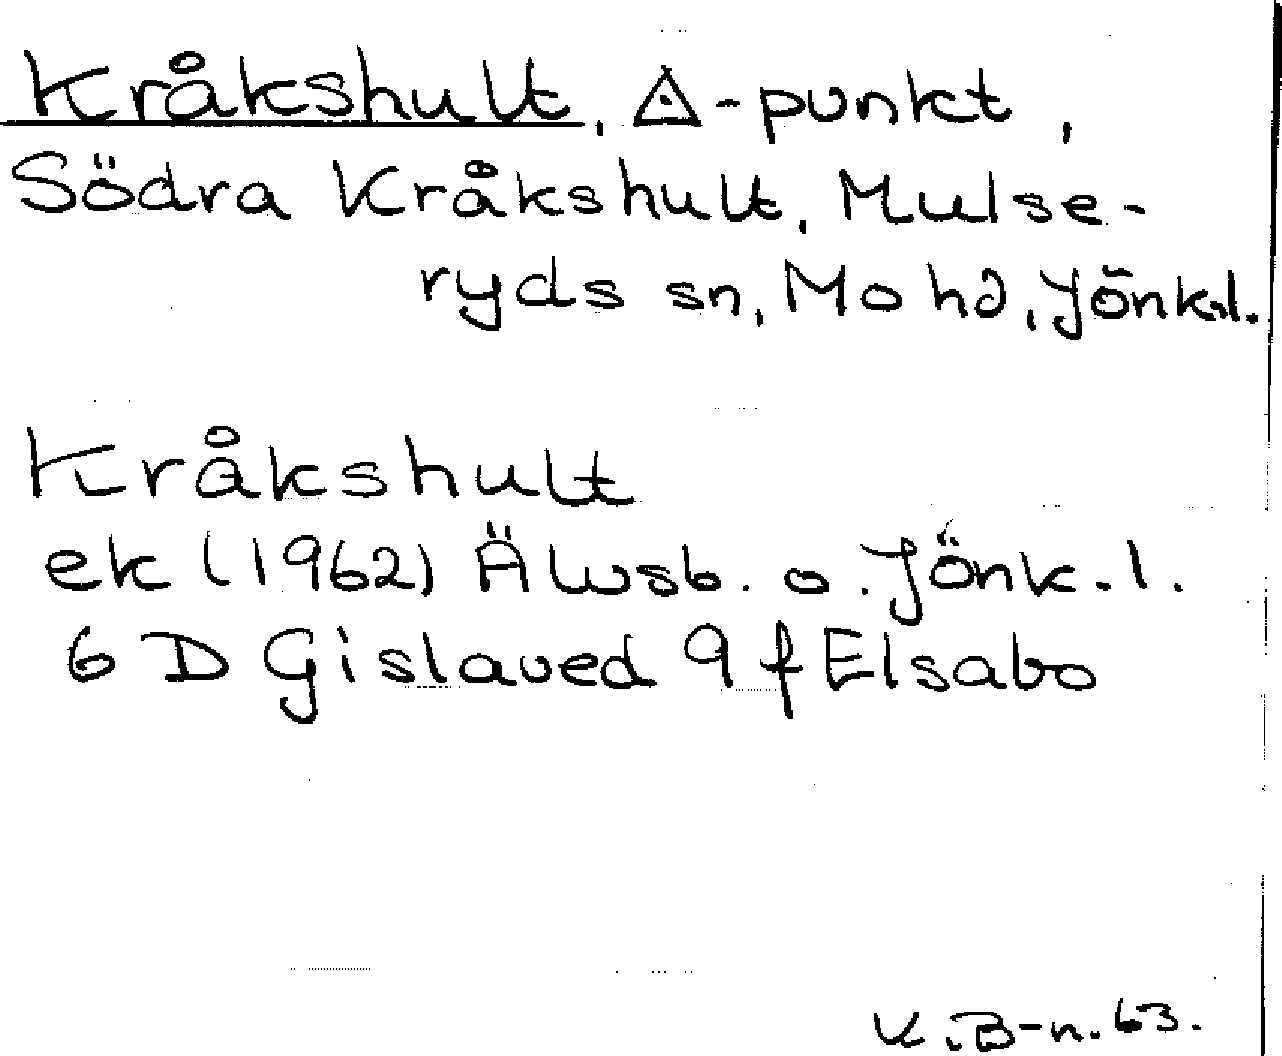 Kråkshult, △-punkt,
Södra Kråkshult, Mulse-
ryds sn, Mo hd, Jönk.l.
Kråkshult
ek (1962) Älvsb. o. Jönk. l.
6 D Gislaved 9 f Elsabo
K. B-n. 63.